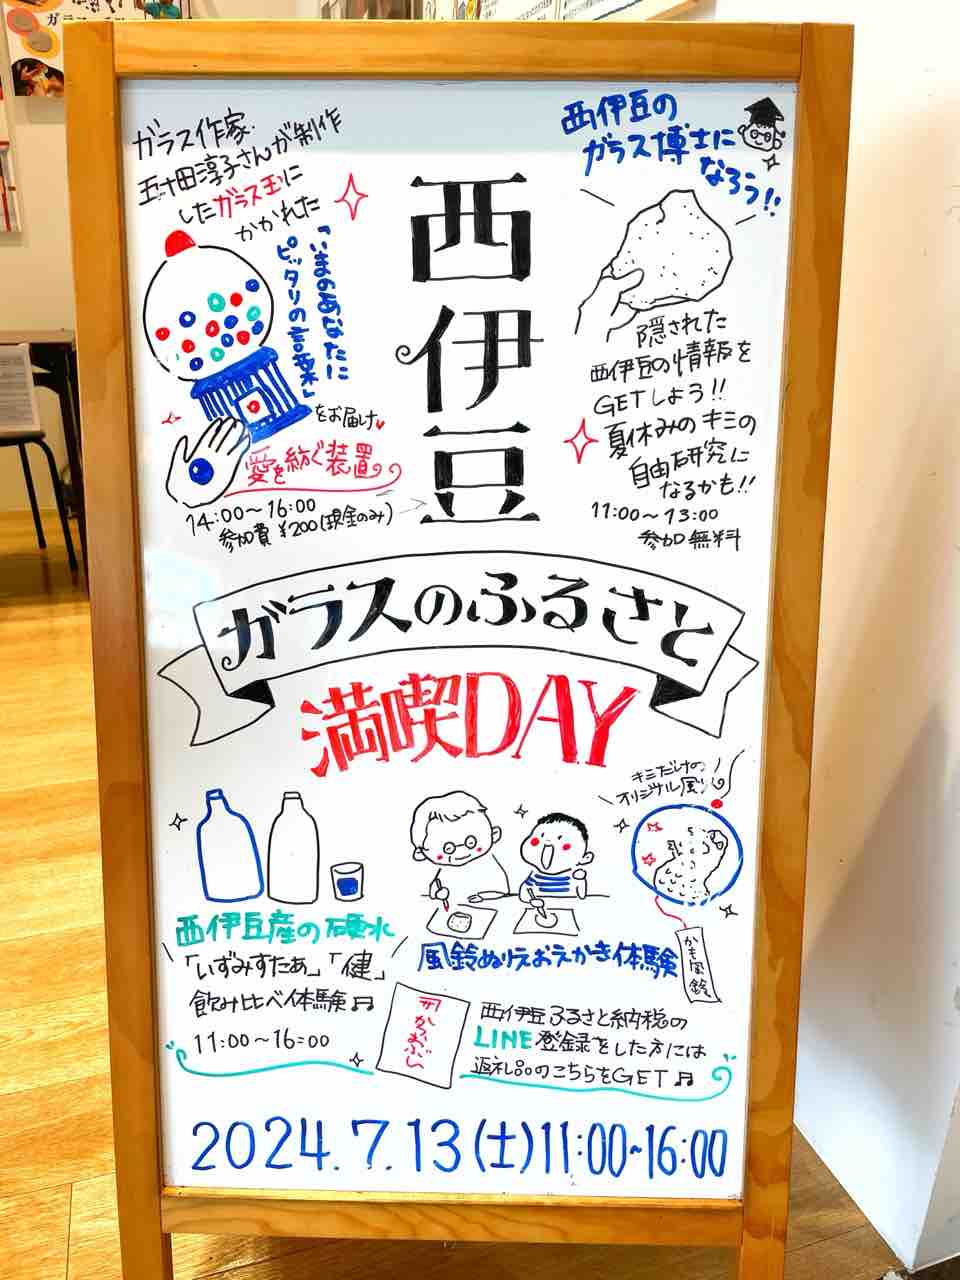 ガラス
ガラス作家
五十田淳子さんが制作
したガラス玉に
かかれた
「いまのあなたに
ピッタリの言葉」
をお届け
愛を紡ぐ装置
14:00～16:00
参加費 ¥200(現金のみ)
西伊豆
西伊豆の
ガラス博士に
なろう!!
隠された
西伊豆の情報を
GETしよう!!
夏休みのキミの
自由研究に
なるかも!!
11:00～13:00
参加無料
ガラスのふるさと
満喫DAY
西伊豆産の硬水
「いずみすたあ」「健」
飲み比べ体験♫
11:00～16:00
キミだけの
オリジナル風りん
風鈴ぬりえおえかき体験
かも風鈴
西伊豆ふるさと納税の
LINE登録をした方には
返礼品のこちらをGET♫
2024.7.13(土)11:00~16:00